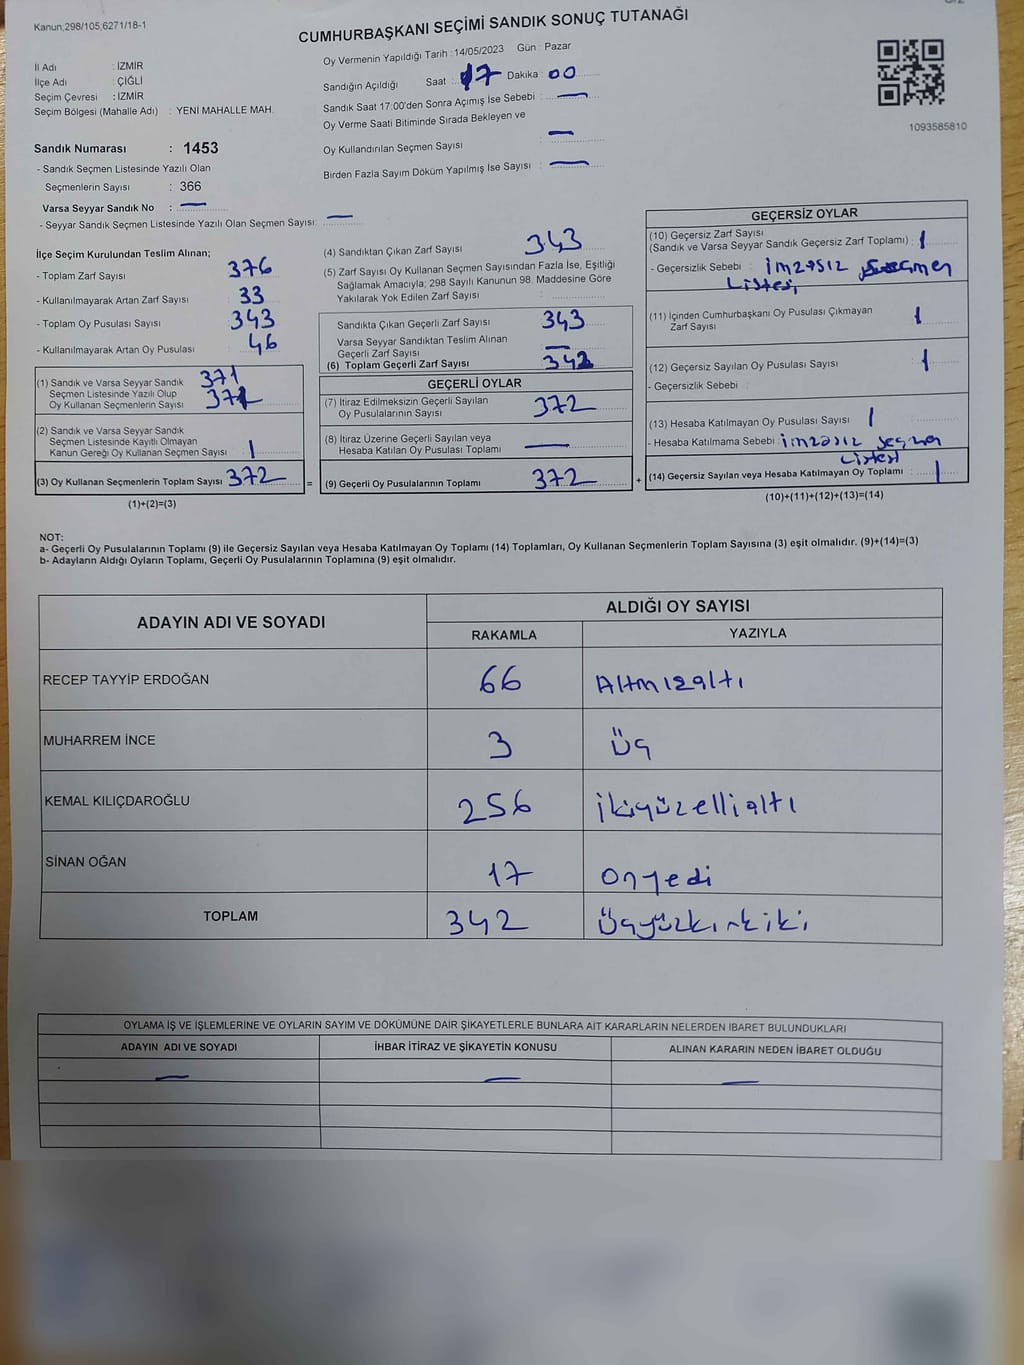 Kanun;298/105;6271/18-1
CUMHURBAŞKANI SEÇİMİ SANDIK SONUÇ TUTANAĞI
İl Adı : İZMİR
İlçe Adı : ÇİĞLİ
Seçim Çevresi : İZMİR
Seçim Bölgesi (Mahalle Adı) : YENİ MAHALLE MAH.
Oy Vermenin Yapıldığı Tarih : 14/05/2023 Gün : Pazar
Sandığın Açıldığı Saat : 17 Dakika : 00
Sandık Saat 17:00'den Sonra Açılmış İse Sebebi : —
Oy Verme Saati Bitiminde Sırada Bekleyen ve
Oy Kullandırılan Seçmen Sayısı : —
Birden Fazla Sayım Döküm Yapılmış İse Sayısı : —
1093585810
Sandık Numarası : 1453
- Sandık Seçmen Listesinde Yazılı Olan
Seçmenlerin Sayısı : 366
Varsa Seyyar Sandık No : —
- Seyyar Sandık Seçmen Listesinde Yazılı Olan Seçmen Sayısı: —
İlçe Seçim Kurulundan Teslim Alınan;
- Toplam Zarf Sayısı 376
- Kullanılmayarak Artan Zarf Sayısı 33
- Toplam Oy Pusulası Sayısı 343
- Kullanılmayarak Artan Oy Pusulası 46
(1) Sandık ve Varsa Seyyar Sandık 371
Seçmen Listesinde Yazılı Olup
Oy Kullanan Seçmenlerin Sayısı 371
(2) Sandık ve Varsa Seyyar Sandık
Seçmen Listesinde Kayıtlı Olmayan
Kanun Gereği Oy Kullanan Seçmen Sayısı 1
(3) Oy Kullanan Seçmenlerin Toplam Sayısı 372 =
(1)+(2)=(3)
(4) Sandıktan Çıkan Zarf Sayısı 343
(5) Zarf Sayısı Oy Kullanan Seçmen Sayısından Fazla İse, Eşitliği
Sağlamak Amacıyla; 298 Sayılı Kanunun 98. Maddesine Göre
Yakılarak Yok Edilen Zarf Sayısı :
Sandıkta Çıkan Geçerli Zarf Sayısı 343
Varsa Seyyar Sandıktan Teslim Alınan
Geçerli Zarf Sayısı —
(6) Toplam Geçerli Zarf Sayısı 342
GEÇERLİ OYLAR
(7) İtiraz Edilmeksizin Geçerli Sayılan
Oy Pusulalarının Sayısı 372
(8) İtiraz Üzerine Geçerli Sayılan veya
Hesaba Katılan Oy Pusulası Toplamı —
(9) Geçerli Oy Pusulalarının Toplamı 372 +
GEÇERSİZ OYLAR
(10) Geçersiz Zarf Sayısı
(Sandık ve Varsa Seyyar Sandık Geçersiz Zarf Toplamı) : 1
- Geçersizlik Sebebi : imzasız seçmen
Listesi
(11) İçinden Cumhurbaşkanı Oy Pusulası Çıkmayan
Zarf Sayısı 1
(12) Geçersiz Sayılan Oy Pusulası Sayısı 1
- Geçersizlik Sebebi :
(13) Hesaba Katılmayan Oy Pusulası Sayısı 1
- Hesaba Katılmama Sebebi : imzasız seçmen
Listesi
(14) Geçersiz Sayılan veya Hesaba Katılmayan Oy Toplamı 1
(10)+(11)+(12)+(13)=(14)
NOT:
a- Geçerli Oy Pusulalarının Toplamı (9) ile Geçersiz Sayılan veya Hesaba Katılmayan Oy Toplamı (14) Toplamları, Oy Kullanan Seçmenlerin Toplam Sayısına (3) eşit olmalıdır. (9)+(14)=(3)
b- Adayların Aldığı Oyların Toplamı, Geçerli Oy Pusulalarının Toplamına (9) eşit olmalıdır.
ADAYIN ADI VE SOYADI
ALDIĞI OY SAYISI
RAKAMLA YAZIYLA
RECEP TAYYİP ERDOĞAN 66 Altmışaltı
MUHARREM İNCE 3 Üç
KEMAL KILIÇDAROĞLU 256 ikiyüzellialtı
SİNAN OĞAN 17 onyedi
TOPLAM 342 Üçyüzkırkiki
OYLAMA İŞ VE İŞLEMLERİNE VE OYLARIN SAYIM VE DÖKÜMÜNE DAİR ŞİKAYETLERLE BUNLARA AİT KARARLARIN NELERDEN İBARET BULUNDUKLARI
ADAYIN ADI VE SOYADI İHBAR İTİRAZ VE ŞİKAYETİN KONUSU ALINAN KARARIN NEDEN İBARET OLDUĞU
— — —